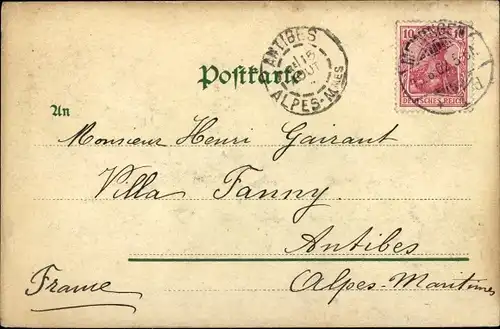 ANTIBES
15
AOUT
ALPES-MMES
10
DEUTSCHES REICH
Postkarte
An
Monsieur Henri Gairaut
Villa Fanny
Antibes
France
Alpes-Maritimes